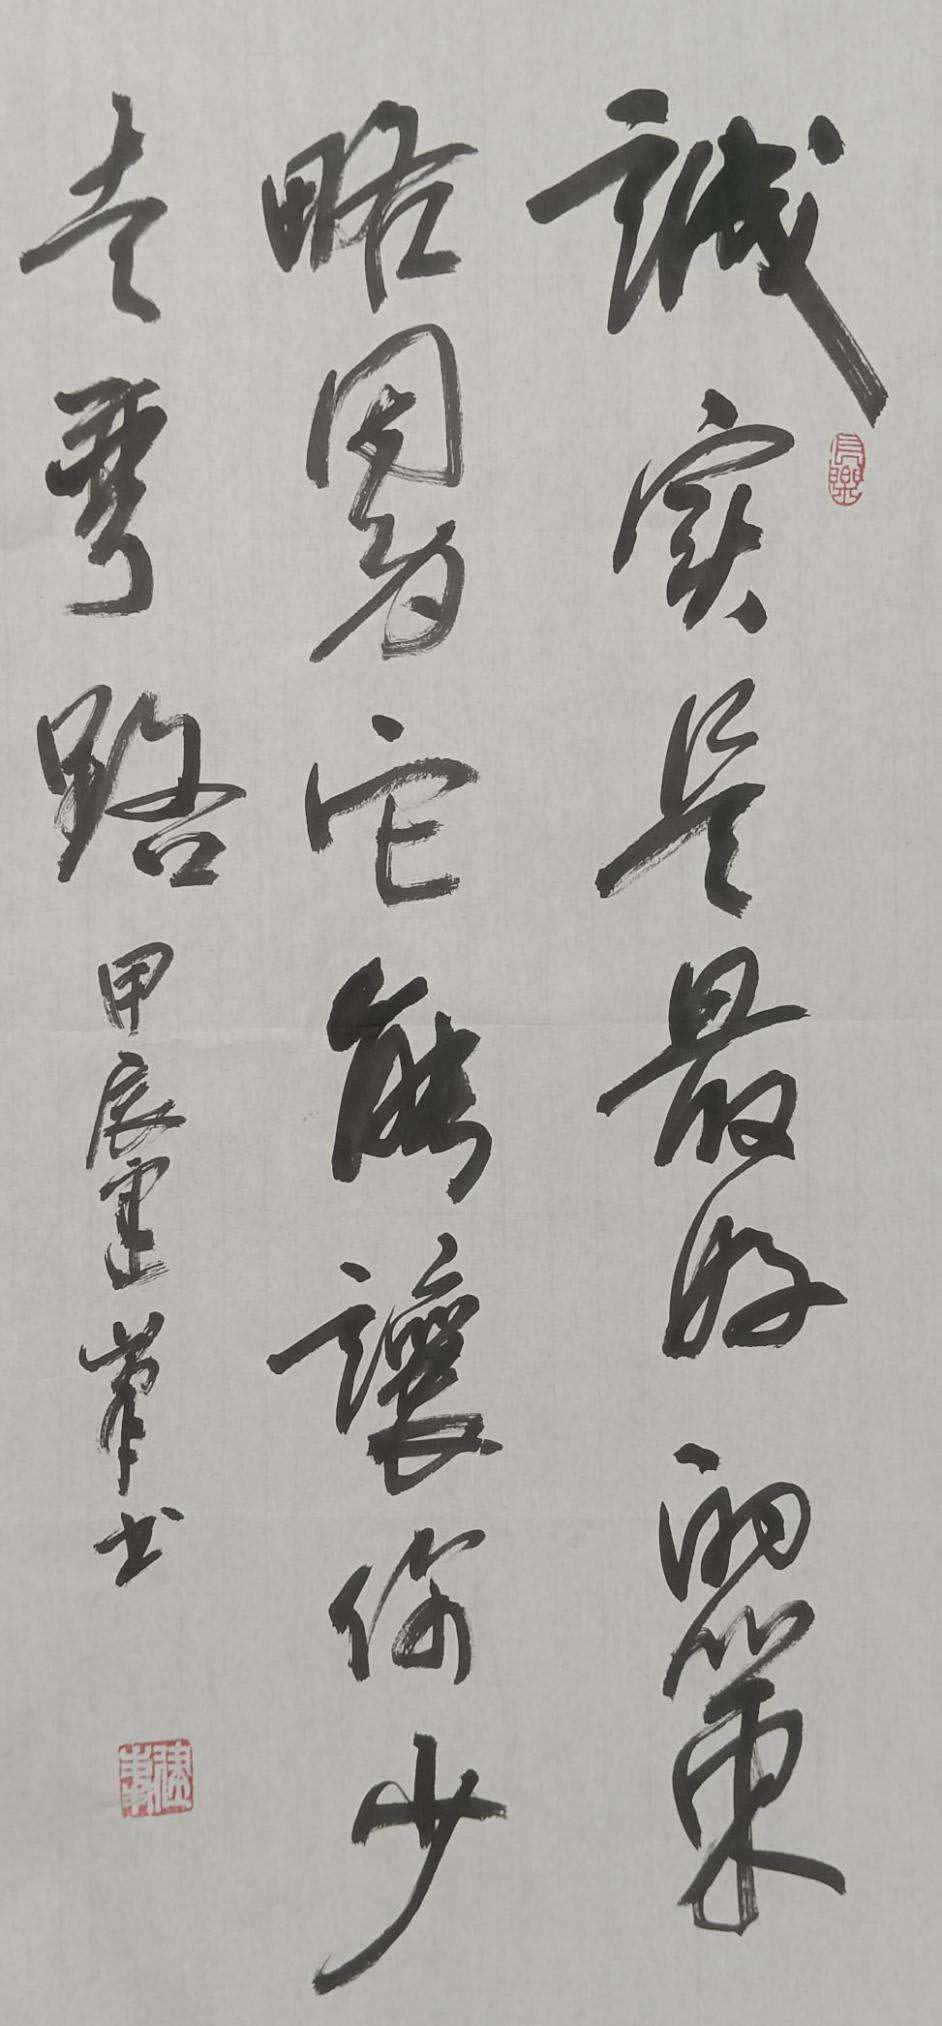 誠實是最好的策
略因为它能讓你少
走彎路甲辰建軍书